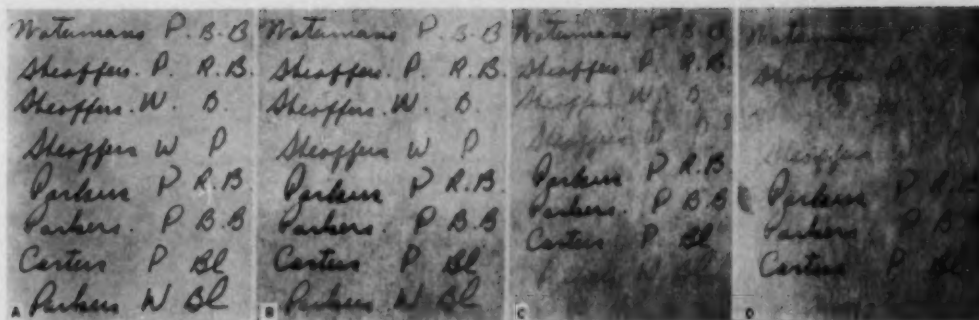 Watermans P. B. B
Sheaffers. P. R.B.
Sheaffers. W. B.
Sheaffers W P
Parkers P R.B.
Parkers. P B.B
Carters P Bl
Parkers W Bl
A
Watermans P. B. B
Sheaffers. P. R.B.
Sheaffers. W. B.
Sheaffers W P
Parkers P R.B.
Parkers. P B.B
Carters P Bl
Parkers W Bl
B
Watermans P B B
Sheaffers. P. R.B
Sheaffers W. B
Sheaffers
Parkers P R.B
Parkers. P B.B
Carters P Bl
C
Watermans
Sheaffers P R
W
Sheaffers
Parkers P R.B
Parkers. P B
Carters P Bl
D